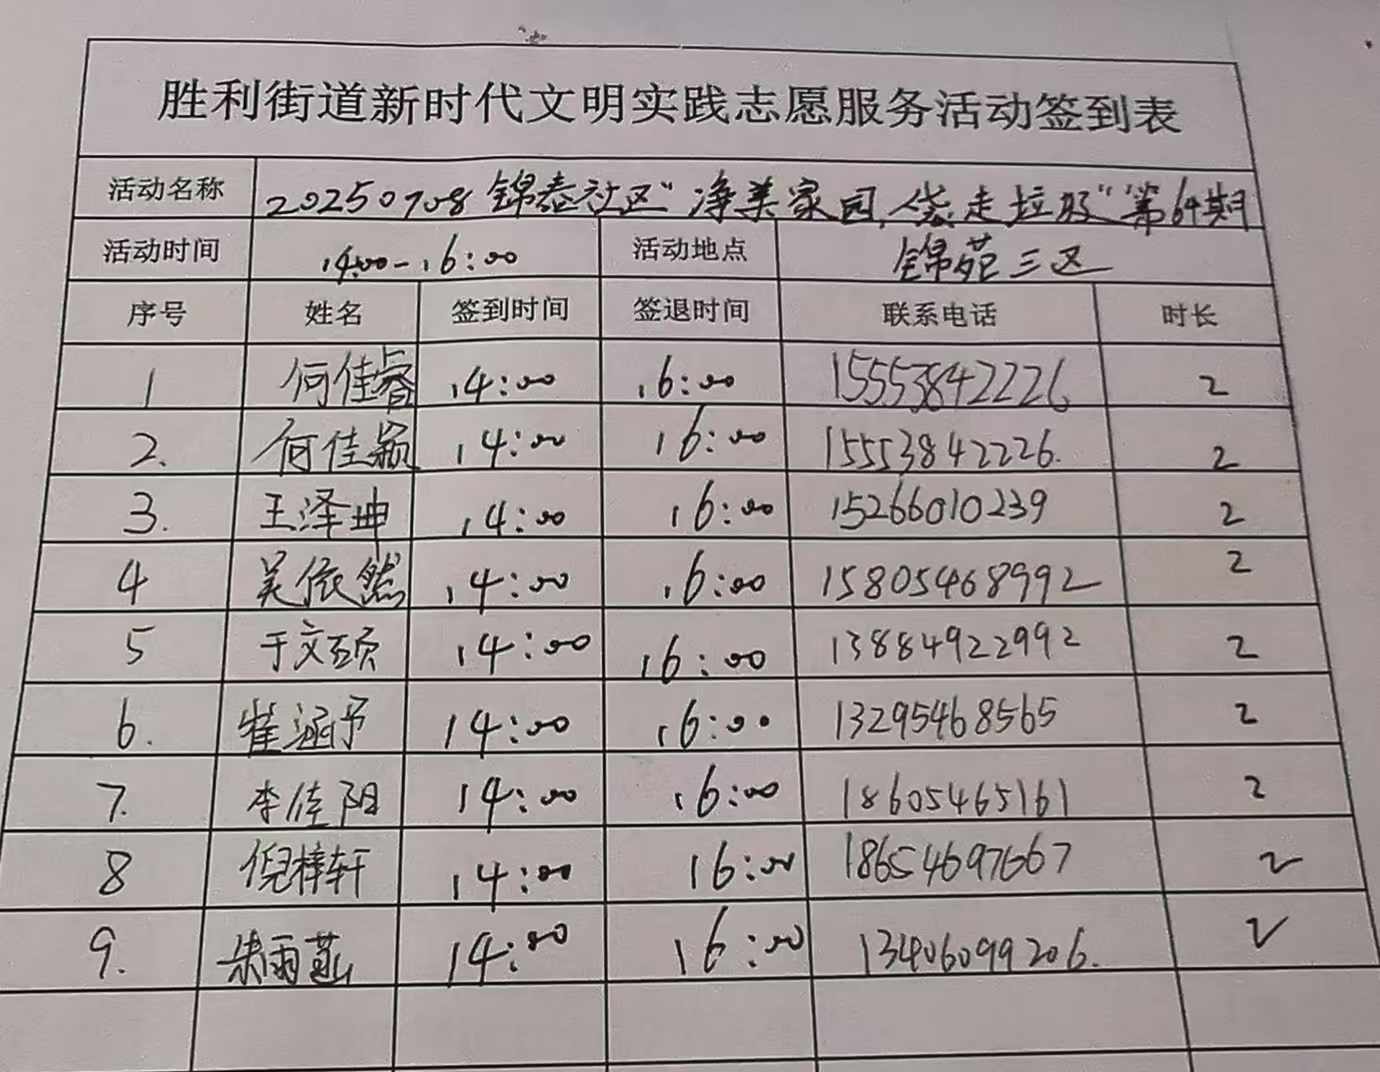 胜利街道新时代文明实践志愿服务活动签到表
活动名称 20250708锦泰社区"净美家园,袋走垃圾"第64期
活动时间 14:00-16:00 活动地点 锦苑三区
序号 姓名 签到时间 签退时间 联系电话 时长
1 何佳睿 14:00 16:00 15553842226 2
2. 何佳颖 14:00 16:00 15553842226. 2
3. 王泽坤 14:00 16:00 15266010239 2
4 吴依然 14:00 16:00 15805468992 2
5 于文硕 14:00 16:00 13884922992 2
6. 崔涵予 14:00 16:00 13295468565 2
7. 李佳阳 14:00 16:00 18605465161 2
8 倪梓轩 14:00 16:00 18654697667 2
9. 朱雨菡 14:00 16:00 13406099206. 2